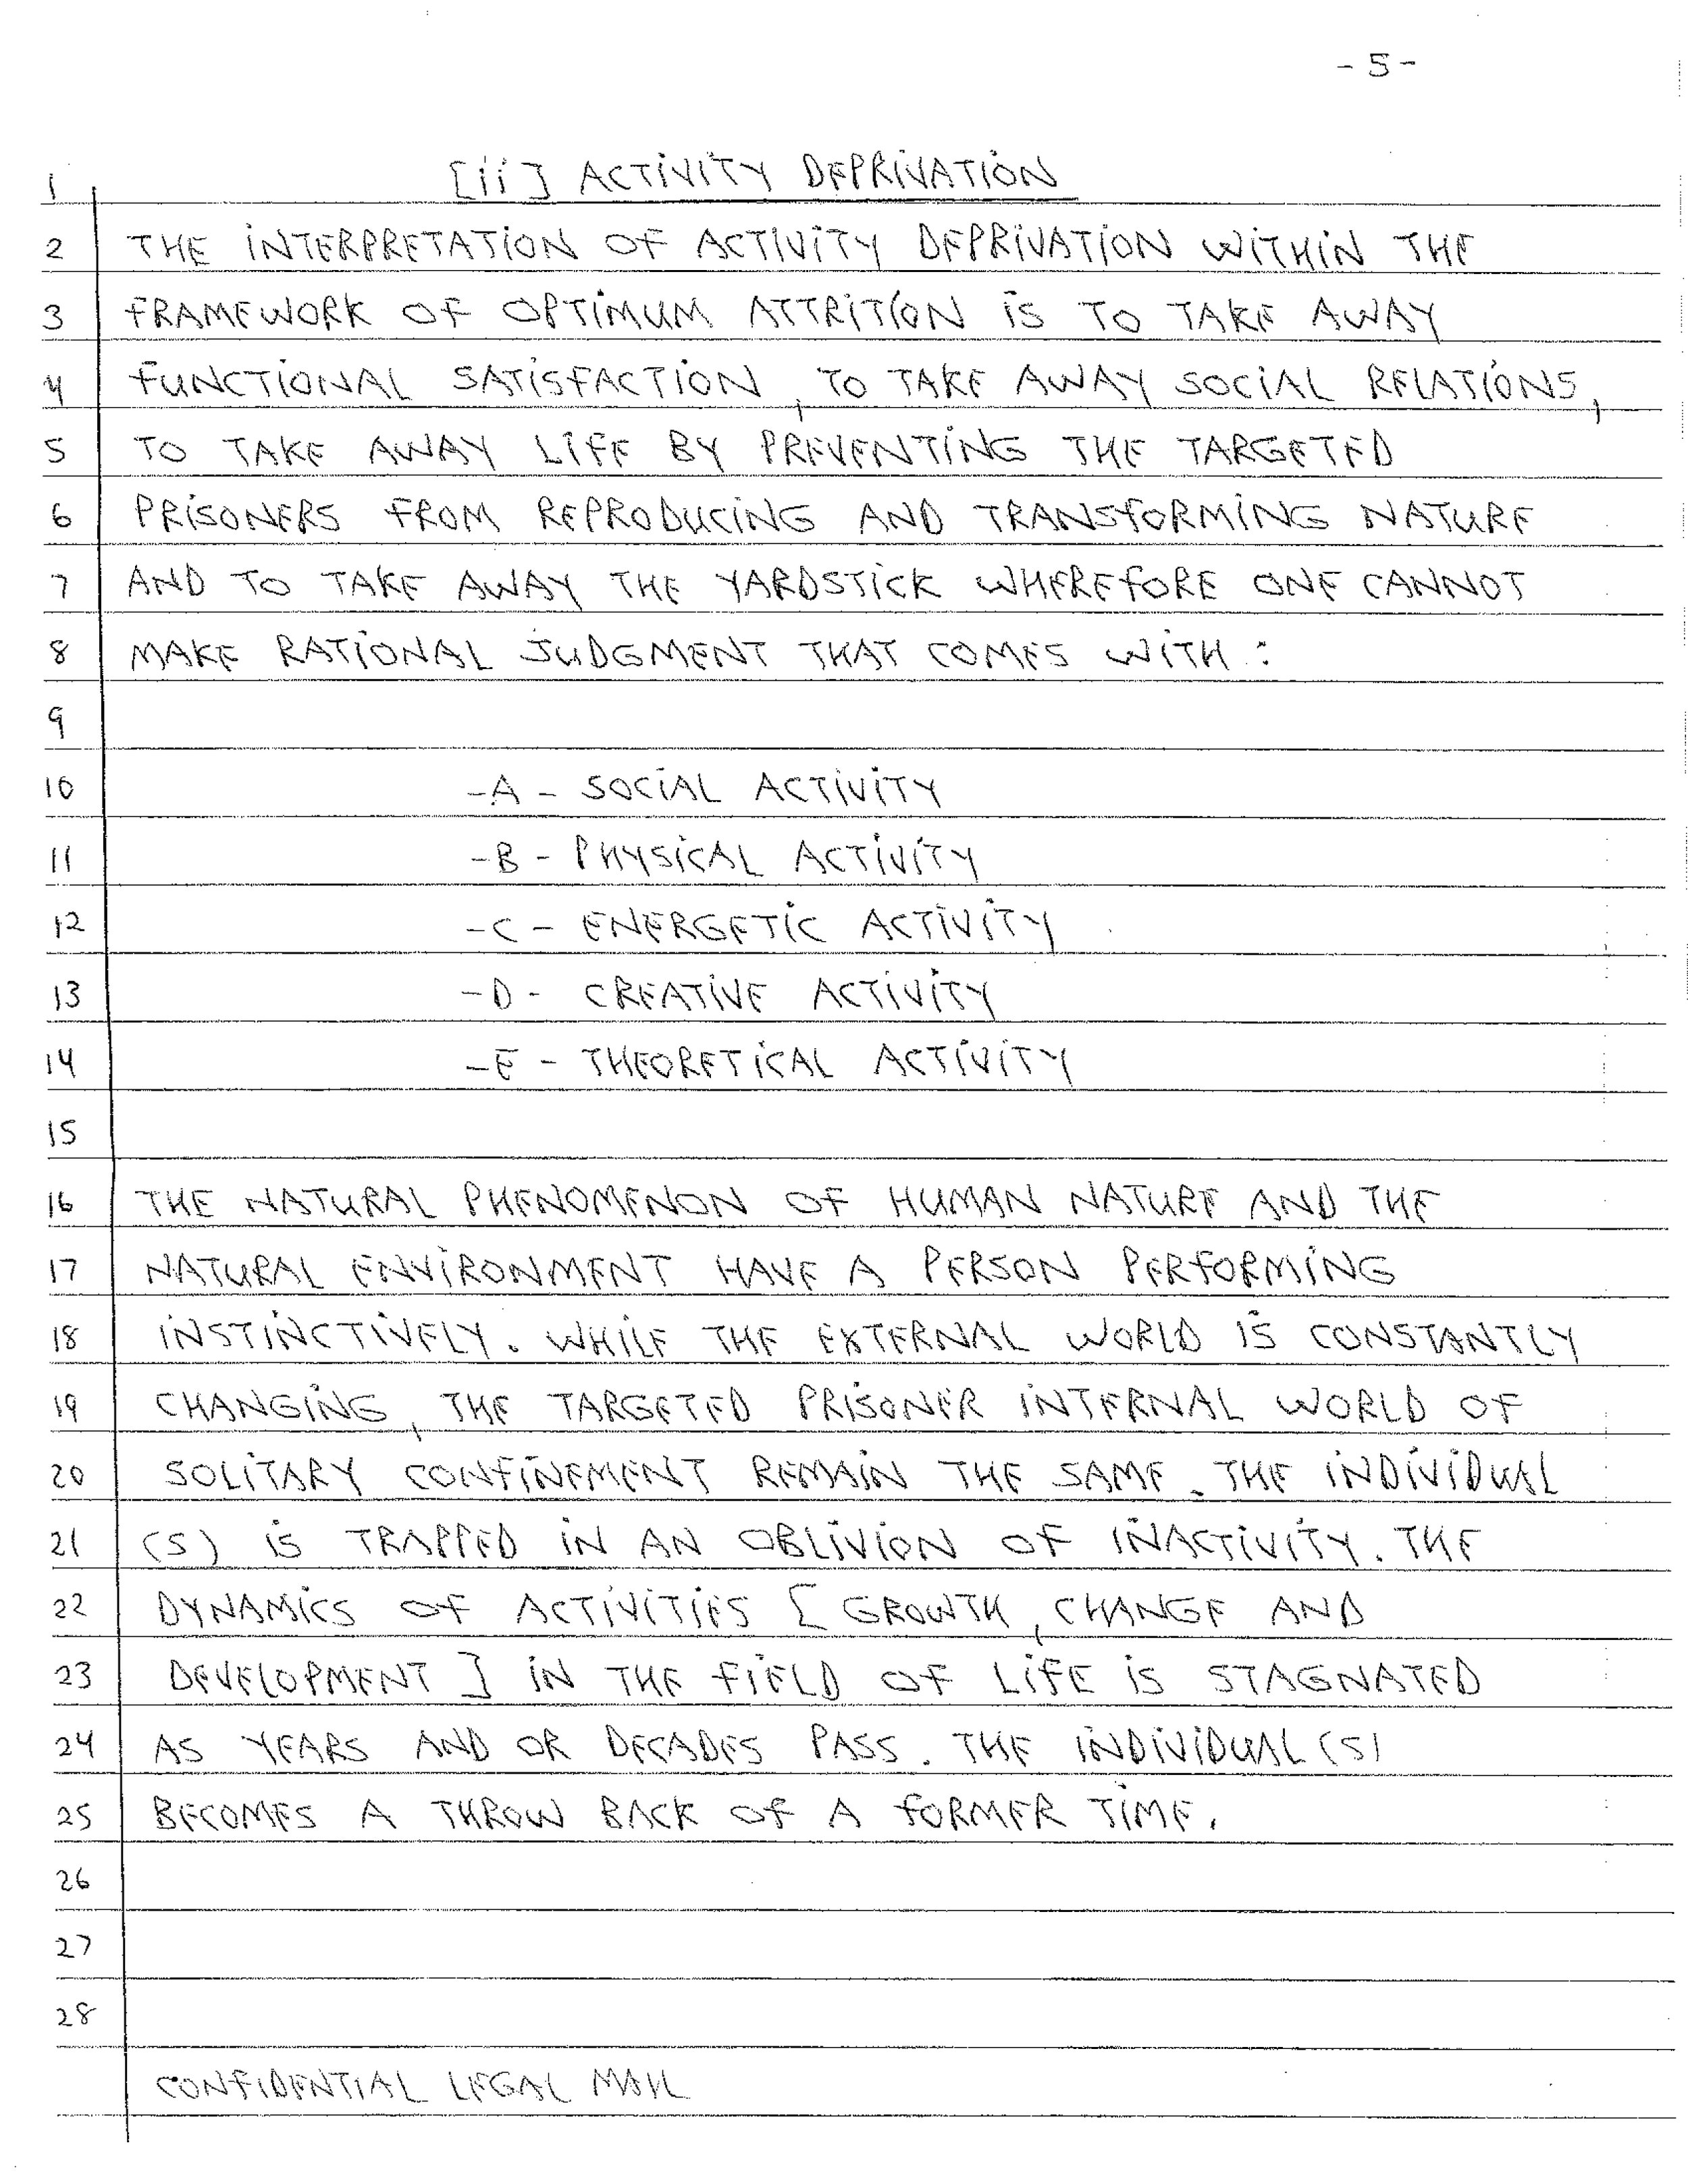 - 5 -
1 [ii] ACTIVITY DEPRIVATION
2 THE INTERPRETATION OF ACTIVITY DEPRIVATION WITHIN THE
3 FRAMEWORK OF OPTIMUM ATTRITION IS TO TAKE AWAY
4 FUNCTIONAL SATISFACTION, TO TAKE AWAY SOCIAL RELATIONS,
5 TO TAKE AWAY LIFE BY PREVENTING THE TARGETED
6 PRISONERS FROM REPRODUCING AND TRANSFORMING NATURE
7 AND TO TAKE AWAY THE YARDSTICK WHEREFORE ONE CANNOT
8 MAKE RATIONAL JUDGMENT THAT COMES WITH:
9
10 -A- SOCIAL ACTIVITY
11 -B- PHYSICAL ACTIVITY
12 -C- ENERGETIC ACTIVITY
13 -D- CREATIVE ACTIVITY
14 -E- THEORETICAL ACTIVITY
15
16 THE NATURAL PHENOMENON OF HUMAN NATURE AND THE
17 NATURAL ENVIRONMENT HAVE A PERSON PERFORMING
18 INSTINCTIVELY. WHILE THE EXTERNAL WORLD IS CONSTANTLY
19 CHANGING, THE TARGETED PRISONER INTERNAL WORLD OF
20 SOLITARY CONFINEMENT REMAIN THE SAME. THE INDIVIDUAL
21 (S) IS TRAPPED IN AN OBLIVION OF INACTIVITY. THE
22 DYNAMICS OF ACTIVITIES [GROWTH, CHANGE AND
23 DEVELOPMENT] IN THE FIELD OF LIFE IS STAGNATED
24 AS YEARS AND OR DECADES PASS. THE INDIVIDUAL(S)
25 BECOMES A THROW BACK OF A FORMER TIME.
26
27
28
CONFIDENTIAL LEGAL MAIL